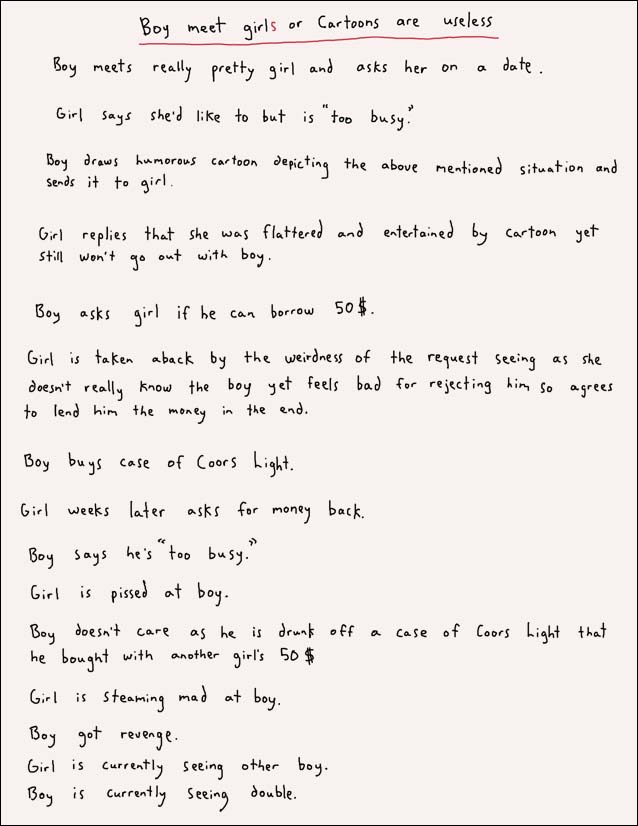 Boy meet girls or Cartoons are useless
Boy meets really pretty girl and asks her on a date.
Girl says she'd like to but is "too busy."
Boy draws humorous cartoon depicting the above mentioned situation and
sends it to girl.
Girl replies that she was flattered and entertained by cartoon yet
still won't go out with boy.
Boy asks girl if he can borrow 50$.
Girl is taken aback by the weirdness of the request seeing as she
doesn't really know the boy yet feels bad for rejecting him so agrees
to lend him the money in the end.
Boy buys case of Coors Light.
Girl weeks later asks for money back.
Boy says he's "too busy."
Girl is pissed at boy.
Boy doesn't care as he is drunk off a case of Coors Light that
he bought with another girl's 50$
Girl is steaming mad at boy.
Boy got revenge.
Girl is currently seeing other boy.
Boy is currently seeing double.